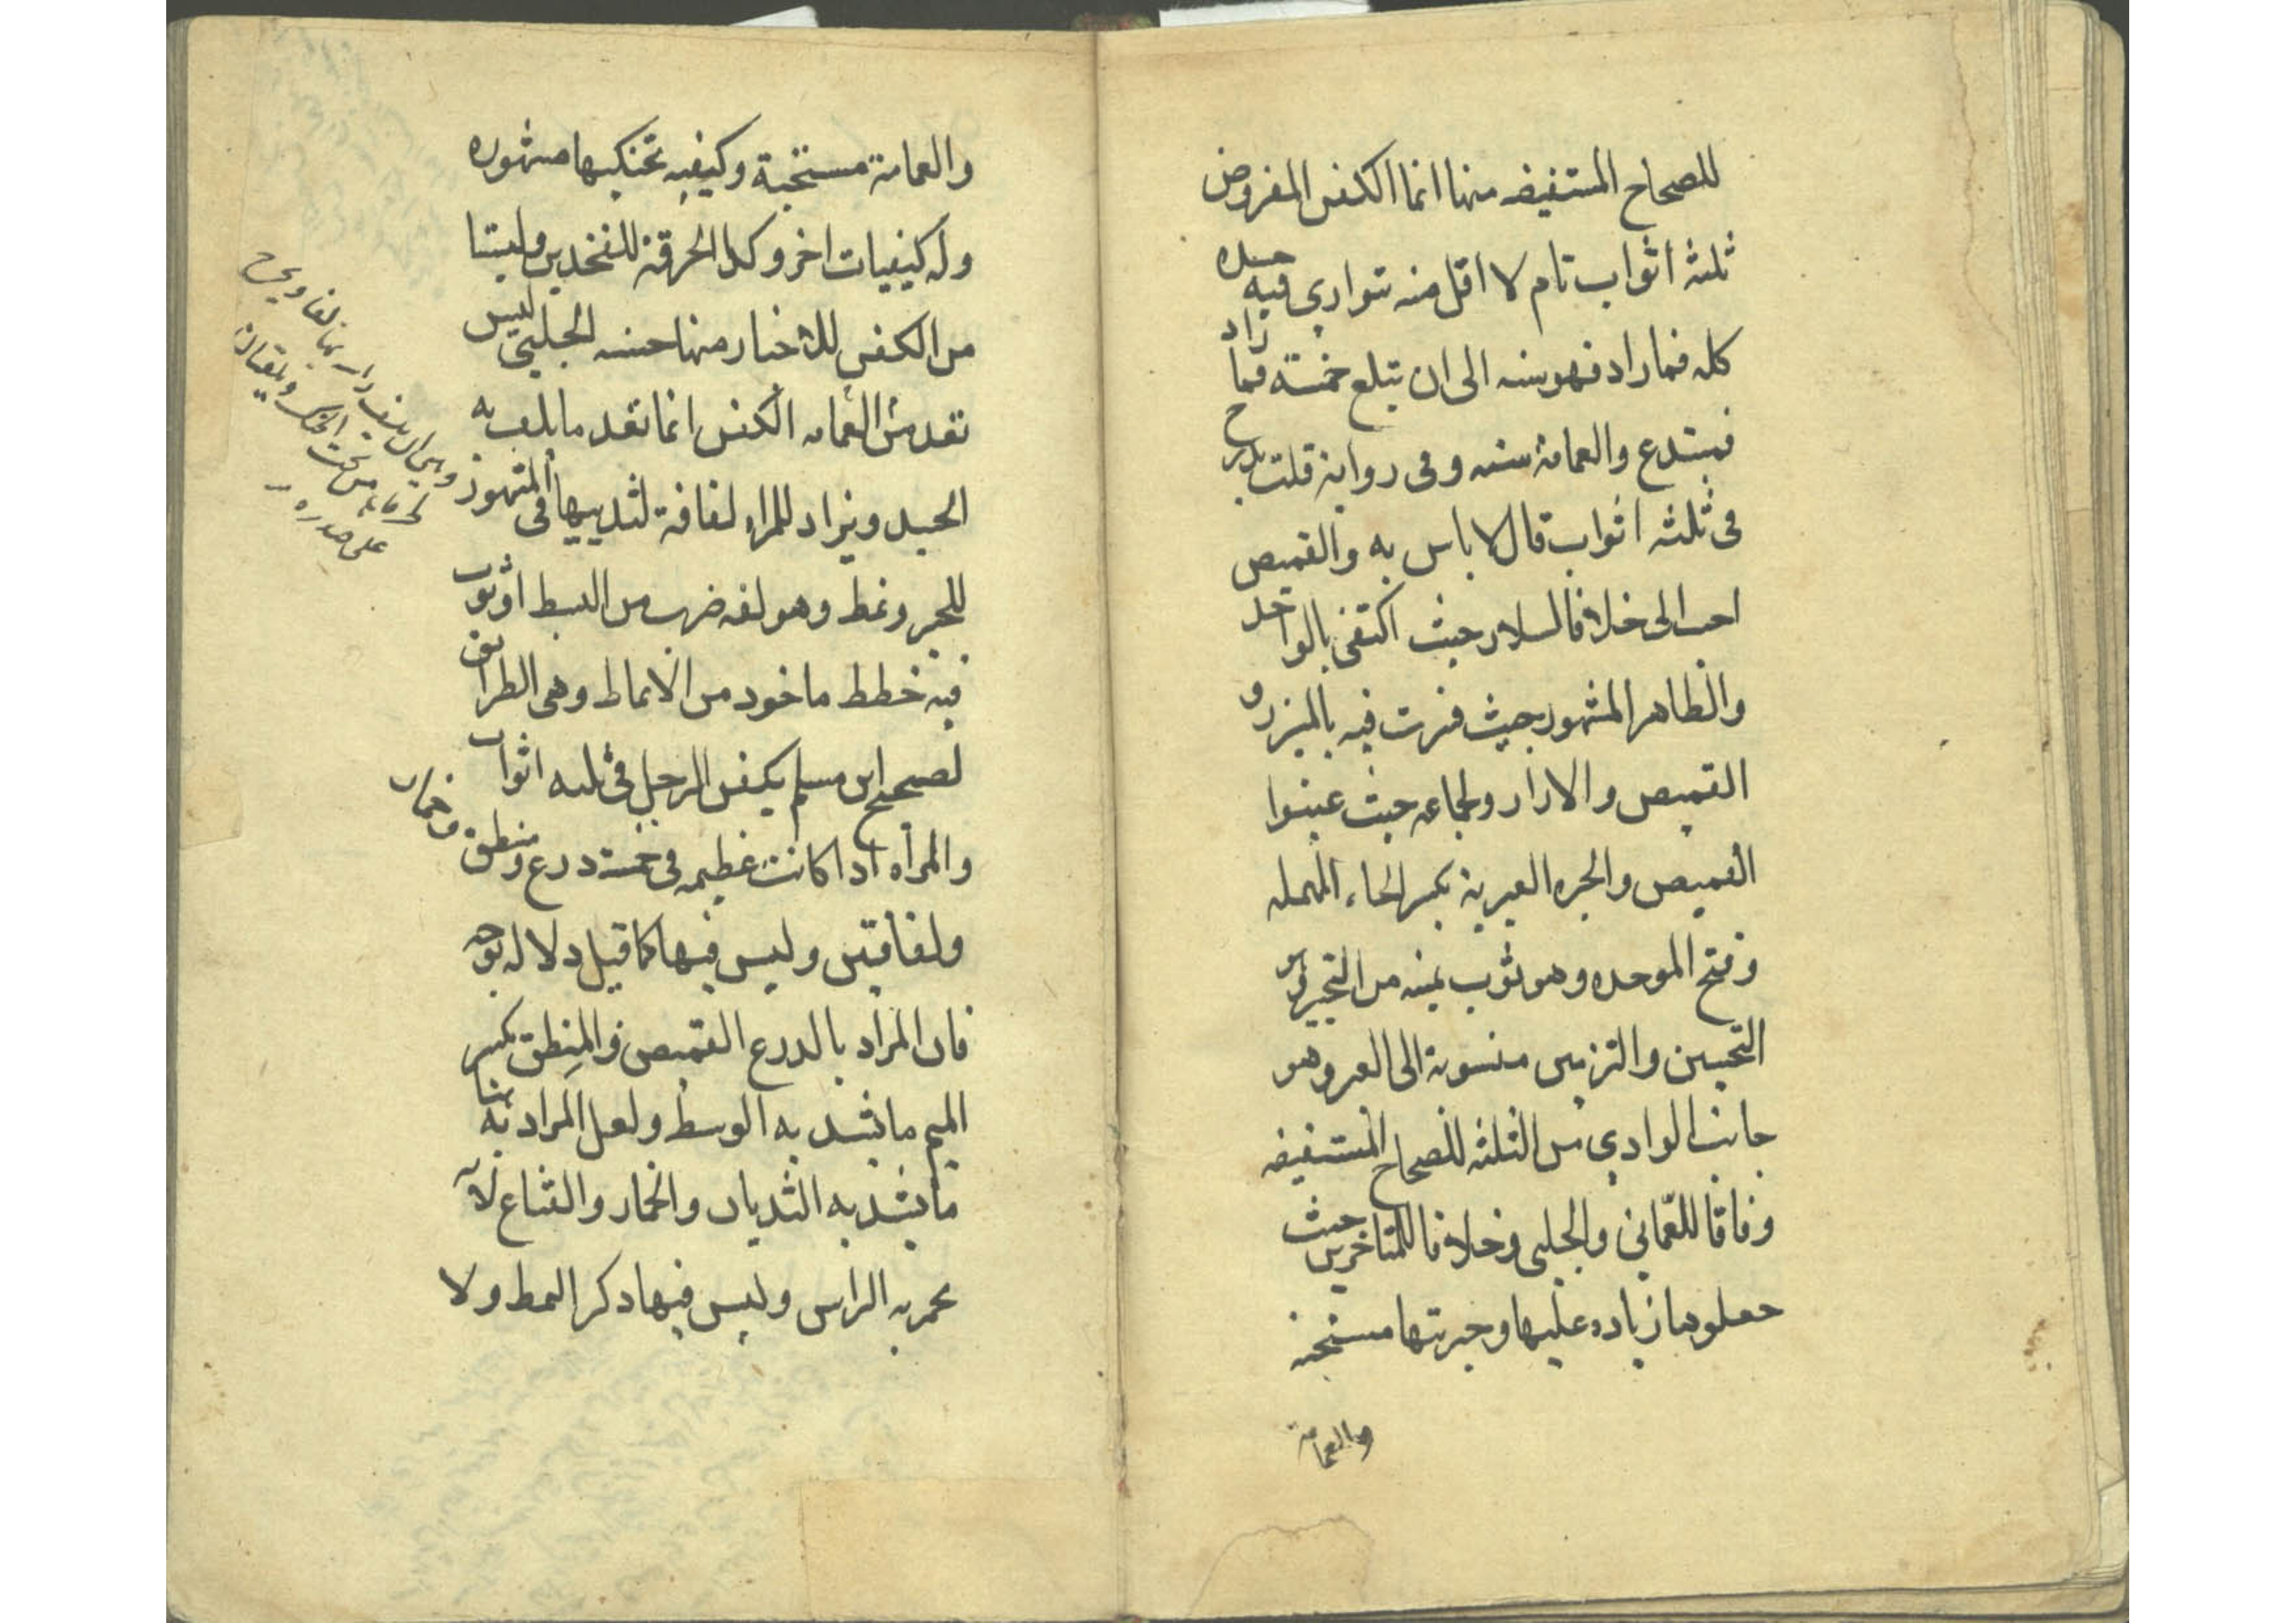 للصحاح المستفيضه منها انما الكفن المفروض
ثلثه اثواب تام لا اقل منه توارى فيه جسده
كله فما زاد فهو سنه الى ان يبلغ خمسة فما زاد
فمبتدع والعمامة سنه وفى رواية قلت
فى ثلثه اثواب قال لا باس به والقميص
احب الى خلافا لسلار حيث اكتفى بالواحد
والظاهر المشهور بحيث فسرت فيه بالميزر و
القميص والازار ولجماعه حيث عينوا
القميص والحبره العبرية بكسر الحاء المهمله
وفتح الموحده وهو ثوب يمنيه من التحبير وهو
التحسين والتزيين منسوبة الى العبر وهو
جانب الوادى من الثلثه للصحاح المستفيضه
وفاقا للعمانى والحلبى وخلافا للمتاخرين حيث
جعلوها زياده عليها وحبرتها مستحبه
والعمامة
والعمامة مستحبة وكيفيه تحنيكها مشهوره
وله كيفيات اخر وكذا الخرقة للفخذين وليستا
من الكفن للاخبار منها حسنه الحلبي ليس
تعد من العمامه الكفن انما تعد ما يلف به
الجسد ويزاد للمراه لفافة لثدييها فى المشهور
للخبر ونمط وهو لغه ضرب من البسط او ثوب
فيه خطط ماخوذ من الانماط وهى الطرائق
لصحيح ابن مسلم يكفن الرجل فى ثلثه اثواب
والمرأه اذا كانت عظيمه فى خمسة درع ومنطق وخمار
ولفافتين وليس فيها كما قيل دلاله بوجه
فان المراد بالدرع القميص والمِنطق بكسر
الميم ما يشد به الوسط ولعل المراد به هنا
ما يشد به الثديان والخمار والقناع لانه
يخمر به الراس وليس فيها ذكر النمط ولا
على صدره